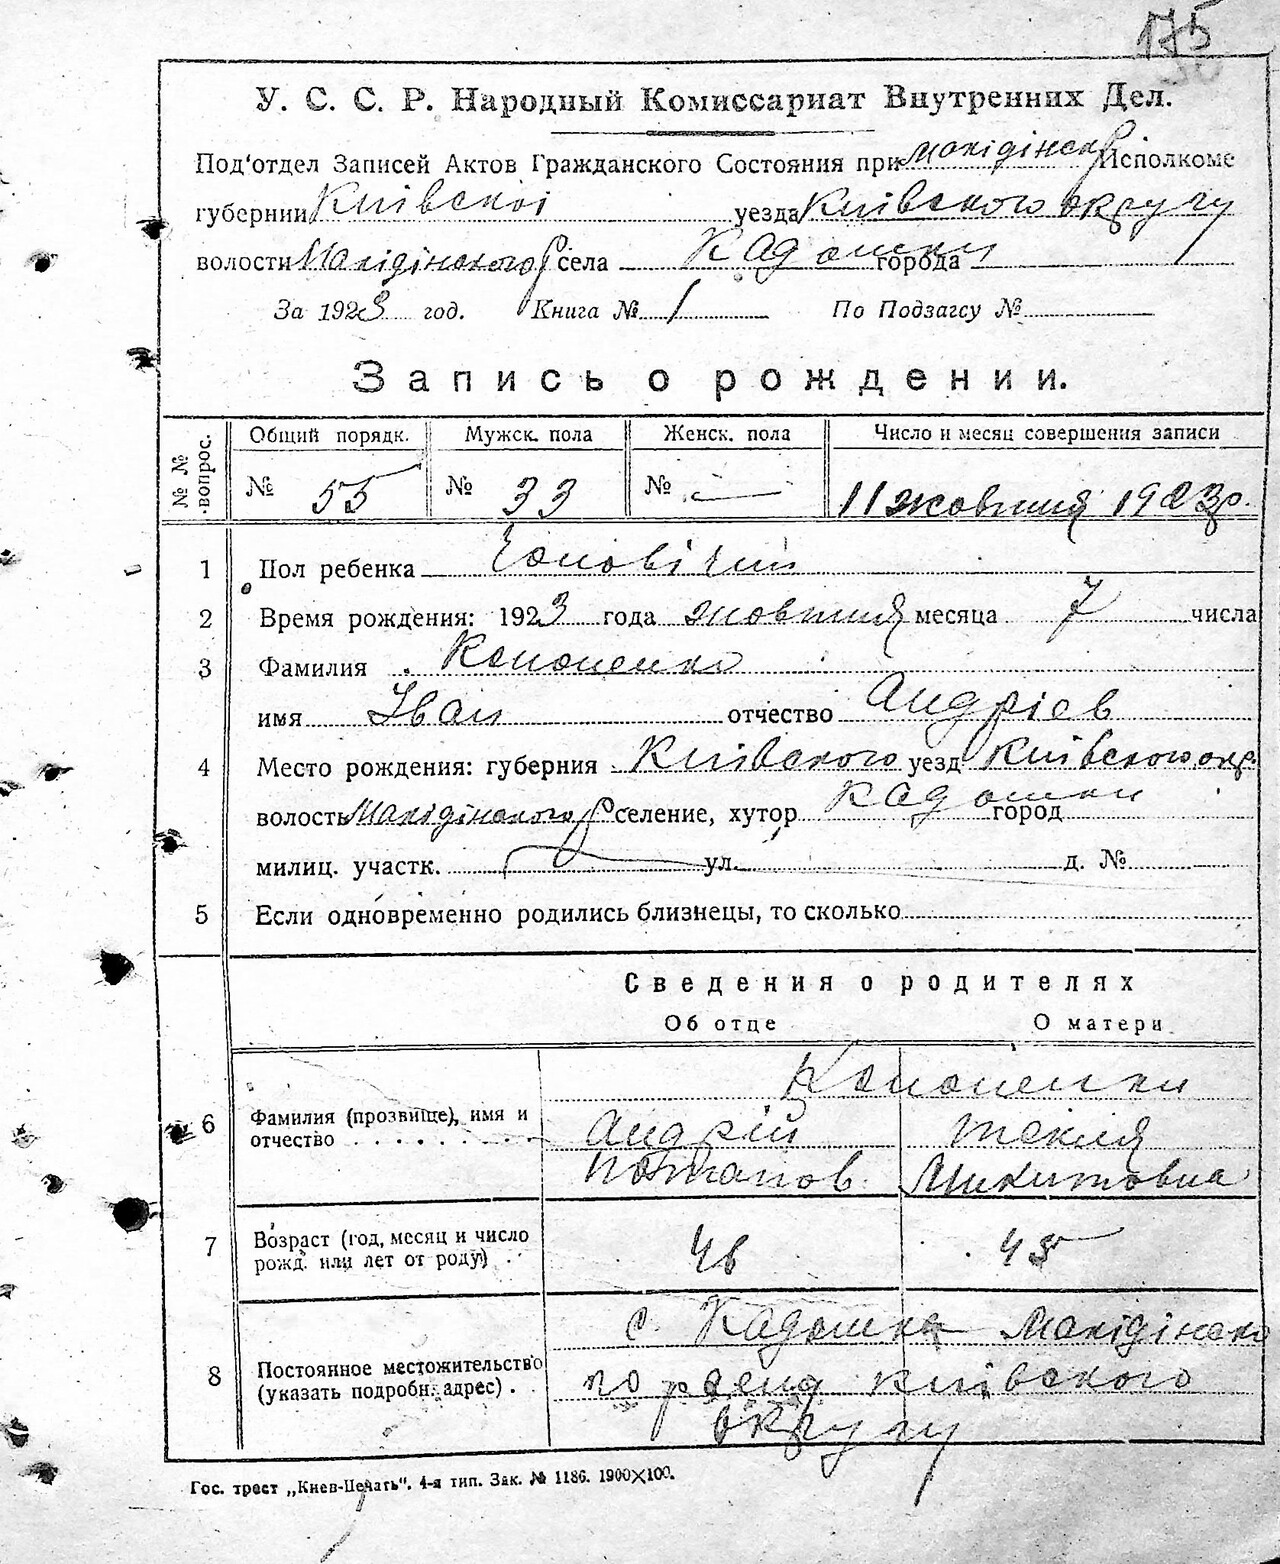 175
У. С. С. Р. Народный Комиссариат Внутренних Дел.
Под'отдел Записей Актов Гражданского Состояния при Исполкоме
губернии Київскої уезда Київского округу
волости села Кадомки города
За 1923 год. Книга № 1 По Подзагсу №
Запись о рождении.
№ № вопрос.
Общий порядк. Мужск. пола Женск. пола Число и месяц совершения записи
№ 55 № 33 № — 11 жовтня 1923 р.
1 Пол ребенка Чоловічий
2 Время рождения: 1923 года жовтня месяца 7 числа
3 Фамилия Кононенко
имя Іван отчество Андріев
4 Место рождения: губерния Київского уезд Київского окр.
волость селение, хутор Кадомки город
милиц. участк. ул. д. №
5 Если одновременно родились близнецы, то сколько
Сведения о родителях
Об отце О матери
Кононенки
6 Фамилия (прозвище), имя и отчество Андрій Текля
Потапов Микитовна
7 Возраст (год, месяц и число рожд. или лет от роду) 46 45
с. Кадомка
8 Постоянное местожительство (указать подробн. адрес) го району Київского
округу
Гос. трест „Киев-Печать". 4-я тип. Зак. № 1186. 1900×100.